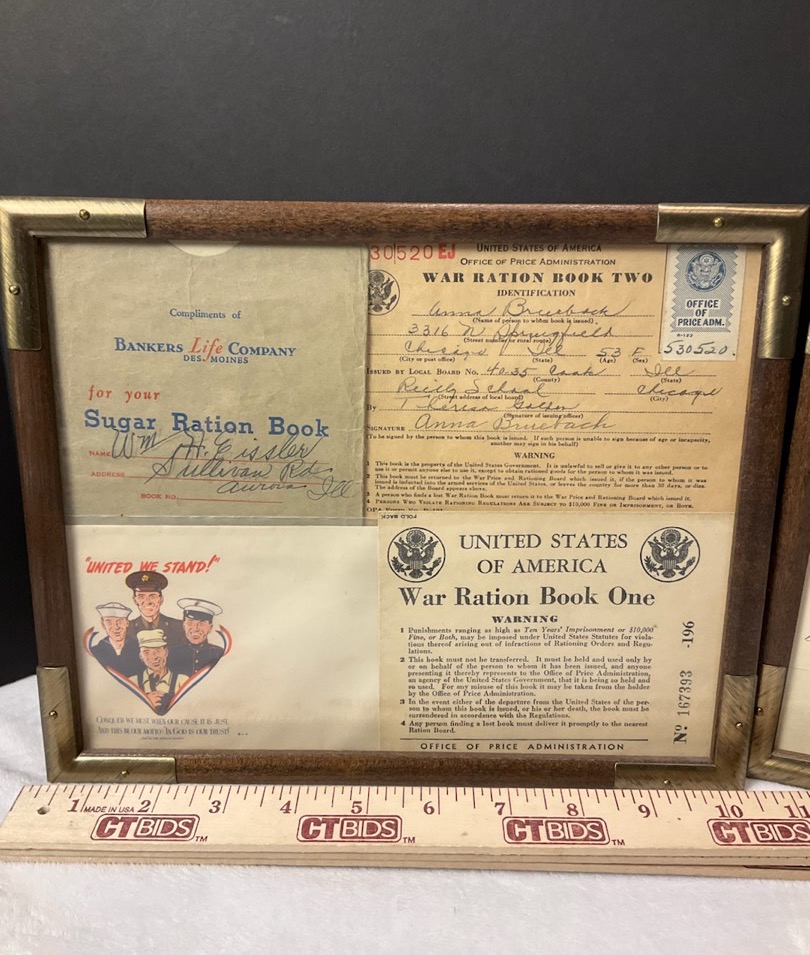 Compliments of
BANKERS Life COMPANY
DES MOINES
for your
Sugar Ration Book
NAME Wm H. Eissler
ADDRESS Sullivan Rd
Aurora Ill
BOOK NO.
30520 EJ
UNITED STATES OF AMERICA
OFFICE OF PRICE ADMINISTRATION
WAR RATION BOOK TWO
IDENTIFICATION
OFFICE
OF
PRICE ADM.
530520.
Anna Bruebach
(Name of person to whom book is issued)
3316 N Springfield
(Street number or rural route)
Chicago Ill 53 F
(City or post office) (State) (Age) (Sex)
ISSUED BY LOCAL BOARD NO. 40-35 Cook Ill
(County) (State)
Reilly School Chicago
(Street address of local board) (City)
By Theresa
(Signature of issuing officer)
SIGNATURE Anna Bruebach
(To be signed by the person to whom this book is issued. If such person is unable to sign because of age or incapacity, another may sign in his behalf)
WARNING
1 This book is the property of the United States Government. It is unlawful to sell or give it to any other person or to
use it or permit anyone else to use it, except to obtain rationed goods for the person to whom it was issued.
2 This book must be returned to the War Price and Rationing Board which issued it, if the person to whom it was
issued is inducted into the armed services of the United States, or leaves the country for more than 30 days, or dies.
The address of the Board appears above.
3 A person who finds a lost War Ration Book must return it to the War Price and Rationing Board which issued it.
4 PERSONS WHO VIOLATE RATIONING REGULATIONS ARE SUBJECT TO $10,000 FINE OR IMPRISONMENT, OR BOTH.
"UNITED WE STAND!"
CONQUER WE MUST WHEN OUR CAUSE IT IS JUST
AND THIS BE OUR MOTTO: IN GOD IS OUR TRUST!
FOLD BACK
UNITED STATES
OF AMERICA
War Ration Book One
WARNING
1 Punishments ranging as high as Ten Years' Imprisonment or $10,000
Fine, or Both, may be imposed under United States Statutes for viola-
tions thereof arising out of infractions of Rationing Orders and Regu-
lations.
2 This book must not be transferred. It must be held and used only by
or on behalf of the person to whom it has been issued, and anyone
presenting it thereby represents to the Office of Price Administration,
an agency of the United States Government, that it is being so held and
so used. For any misuse of this book it may be taken from the holder
by the Office of Price Administration.
3 In the event either of the departure from the United States of the per-
son to whom this book is issued, or his or her death, the book must be
surrendered in accordance with the Regulations.
4 Any person finding a lost book must deliver it promptly to the nearest
Ration Board.
OFFICE OF PRICE ADMINISTRATION
Nº 167393 -196
1 MADE IN USA 2 3 4 5 6 7 8 9 10 11
CTBIDS TM CTBIDS TM CTBIDS TM CTBIDS